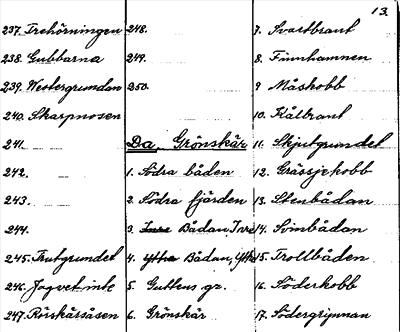 13.
237. Trehörningen
238. Gubbarna
239. Westergrundan
240. Skarpnosen
241.
242.
243.
244.
245. Trutgrundet
246. Jag vet inte
247. Rörskärsåsen
248.
249.
250.
Da, Grönskär
1. Södra båden
2. Södra fjärden
3. Inre Bådan, Inre
4. Yttre Bådan, Yttre
5. Guttens gr.
6. Grönskär
7. Svartbrant
8. Finnhamnen
9. Måskobb
10. Kålbrant
11. Skjutgrundet
12. Grässjekobb
13. Stenbådan
14. Svinbådan
15. Trollbåden
16. Söderkobb
17. Södergrynnan